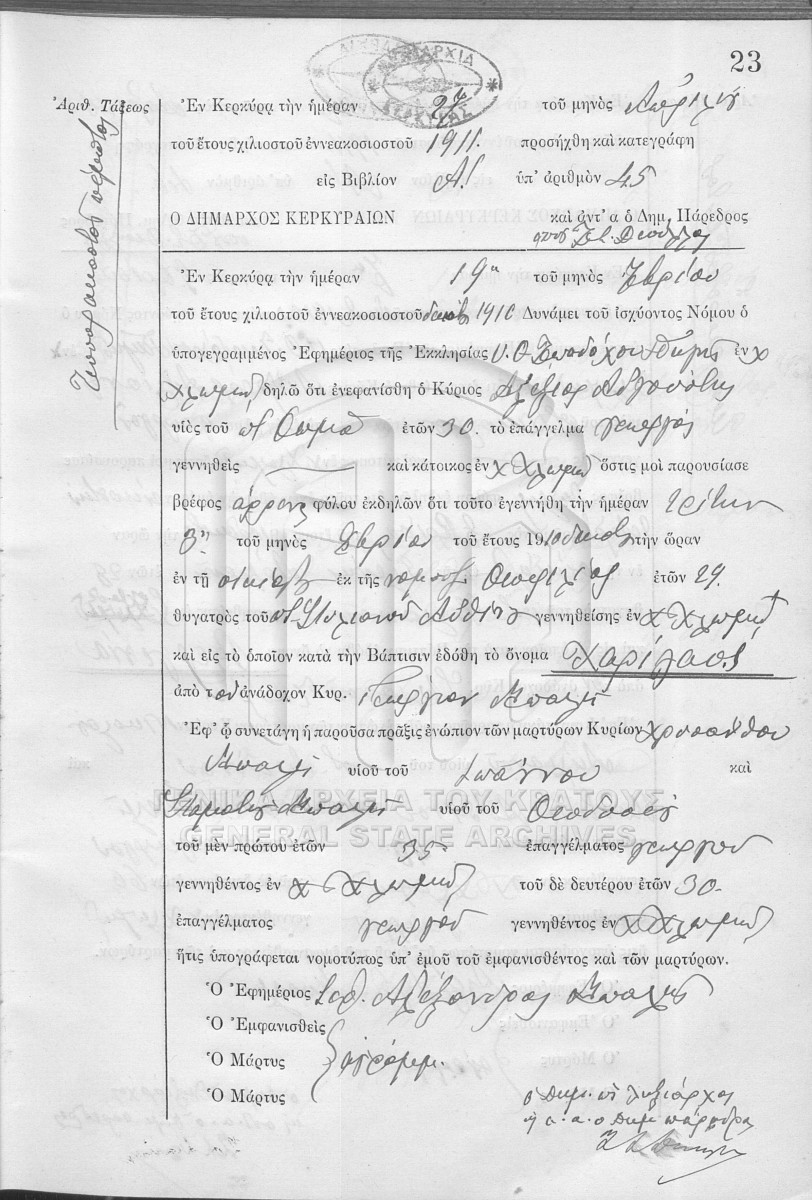 23
ΛΗΞΙΑΡΧΙΑ
ΚΕΡΚΥΡΑΣ
Ἀριθ. Τάξεως
Τεσσαρακοστὸν πέμπτον
Ἐν Κερκύρᾳ τὴν ἡμέραν τοῦ μηνὸς Ἀπριλίου
τοῦ ἔτους χιλιοστοῦ ἐννεακοσιοστοῦ 1911. προσήχθη καὶ κατεγράφη
εἰς Βιβλίον Α. ὑπ' ἀριθμὸν 45
Ο ΔΗΜΑΡΧΟΣ ΚΕΡΚΥΡΑΙΩΝ καὶ ἀντ' α ὁ Δημ. Πάρεδρος
Ἐν Κερκύρᾳ τὴν ἡμέραν 19η τοῦ μηνὸς
τοῦ ἔτους χιλιοστοῦ ἐννεακοσιοστοῦ 1910 Δυνάμει τοῦ ἰσχύοντος Νόμου ὁ
ὑπογεγραμμένος Ἐφημέριος τῆς Ἐκκλησίας Υ. Θ. ἐν χ
Χλωμῷ δηλῶ ὅτι ἐνεφανίσθη ὁ Κύριος Ἀλέξιος
υἱὸς τοῦ π Θωμᾶ ἐτῶν 30. τὸ ἐπάγγελμα γεωργὸς
γεννηθεὶς καὶ κάτοικος ἐν χ Χλωμῷ ὅστις μοὶ παρουσίασε
βρέφος ἄρρενος φύλου ἐκδηλῶν ὅτι τοῦτο ἐγεννήθη τὴν ἡμέραν τρίτην
3η τοῦ μηνὸς τοῦ ἔτους 1910 τὴν ὥραν
ἐν τῇ οἰκίᾳ ἐκ τῆς νομίμου Θεοφιλίας ἐτῶν 29.
θυγατρὸς τοῦ π Στυλιανοῦ γεννηθείσης ἐν χ Χλωμῷ
καὶ εἰς τὸ ὁποῖον κατὰ τὴν Βάπτισιν ἐδόθη τὸ ὄνομα Χαρίλαος
ἀπὸ τὸν ἀνάδοχον Κυρ. Γεώργιον Μπαλῆ
Ἐφ' ᾧ συνετάγη ἡ παροῦσα πρᾶξις ἐνώπιον τῶν μαρτύρων Κυρίων Χρυσάνθου
Μπαλῆ υἱοῦ τοῦ Ἰωάννου καὶ
Σταματίου Μπαλῆ υἱοῦ τοῦ Θεοδοσίου
ΓΕΝΙΚΑ ΑΡΧΕΙΑ ΤΟΥ ΚΡΑΤΟΥΣ
GENERAL STATE ARCHIVES
τοῦ μὲν πρώτου ἐτῶν 35 ἐπαγγέλματος γεωργοῦ
γεννηθέντος ἐν χ Χλωμῷ τοῦ δὲ δευτέρου ἐτῶν 30.
ἐπαγγέλματος γεωργοῦ γεννηθέντος ἐν χ Χλωμῷ
ἥτις ὑπογράφεται νομοτύπως ὑπ' ἐμοῦ τοῦ ἐμφανισθέντος καὶ τῶν μαρτύρων.
Ὁ Ἐφημέριος Ἀλέξανδρος Μπαλῆς
Ὁ Ἐμφανισθεὶς
Ὁ Μάρτυς ἀγράμμ.
Ὁ Μάρτυς
ὁ Δημ. ὡς Ληξίαρχος
κ α. α. ὁ Δημ πάρεδρος